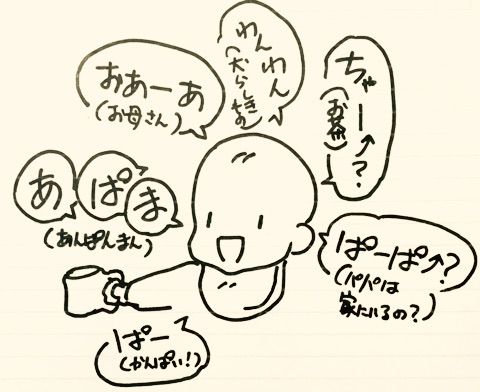 わんわん
(犬らしきもの)
おあーあ
(お母さん)
ちゃー↗?
(お茶)
あ ぱ ま
(あんぱんまん)
ぱーぱ↗?
(パパは
家にいるの?)
ぱー
(かんぱい!)